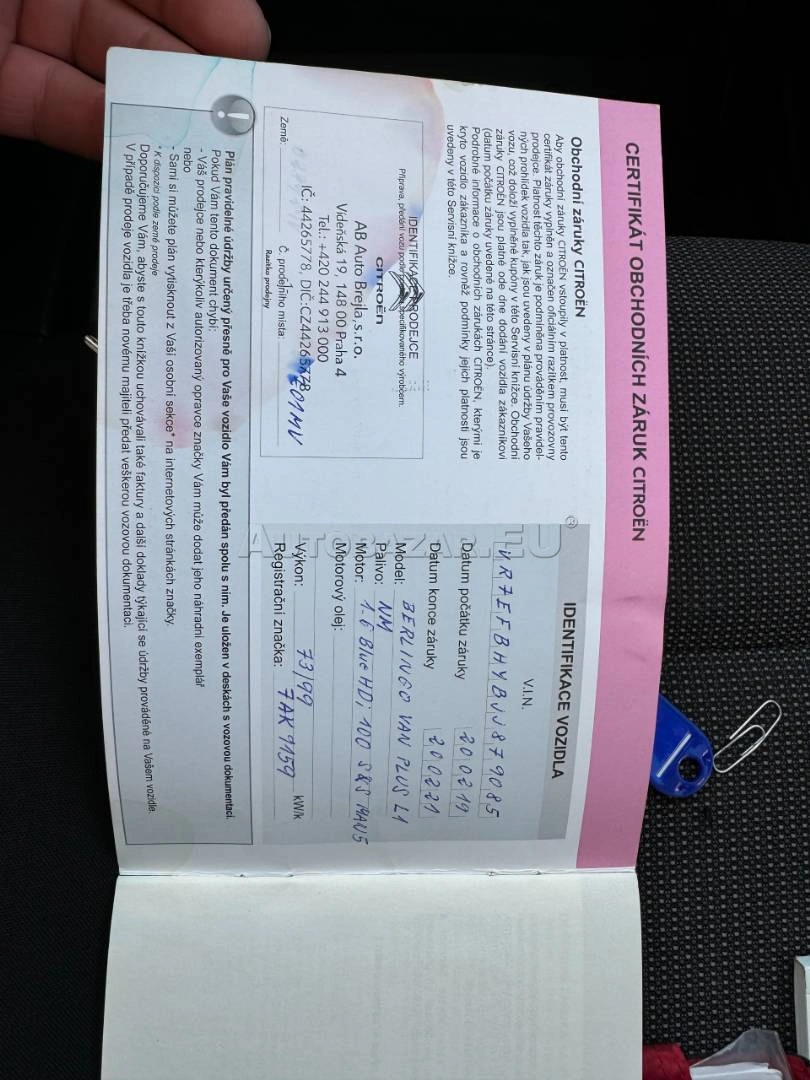 CERTIFIKÁT OBCHODNÍCH ZÁRUK CITROËN
Obchodní záruky CITROËN
Aby obchodní záruky CITROËN vstoupily v platnost, musí být tento
certifikát záruky vyplněn a označen oficiálním razítkem provozovny
prodejce. Platnost těchto záruk je podmíněna prováděním pravidel-
ných prohlídek vozidla tak, jak jsou uvedeny v plánu údržby Vašeho
vozu, což doloží vyplněné kupóny v této Servisní knížce. Obchodní
záruky CITROËN jsou platné ode dne dodání vozidla zákazníkovi
(datum počátku záruky uvedené na této stránce).
Podrobné informace o obchodních zárukách CITROËN, kterými je
kryto vozidlo zákazníka a rovněž podmínky jejich platnosti jsou
uvedeny v této Servisní knížce.
IDENTIFIKACE PRODEJCE
Příprava, předání vozu podle specifikovaného výrobcem.
CITROËN
AB Auto Brejla, s.r.o.
Vídeňská 19, 148 00 Praha 4
Tel.: +420 244 913 000
IČ: 44265778, DIČ:CZ44265778
Země:
Č. prodejního místa: E01MV
Razítko prodejny
IDENTIFIKACE VOZIDLA
V.I.N.
VR7EFBHYBJJ879085
Datum počátku záruky 200219
Datum konce záruky 200221
Model: BERLINGO VAN PLUS L1
Palivo: NM
Motor: 1.6 BlueHDi 100 S&S MAN5
Motorový olej:
Výkon: 73/99 kW/k
Registrační značka: 7AK 1159
Plán pravidelné údržby určený přesně pro Vaše vozidlo Vám byl předán spolu s ním. Je uložen v deskách s vozovou dokumentací.
Pokud Vám tento dokument chybí:
- Váš prodejce nebo kterýkoliv autorizovaný opravce značky Vám může dodat jeho náhradní exemplář
nebo
- Sami si můžete plán vytisknout z Vaší osobní sekce* na internetových stránkách značky.
* K dispozici podle země prodeje
Doporučujeme Vám, abyste s touto knížkou uchovávali také faktury a další doklady týkající se údržby prováděné na Vašem vozidle.
V případě prodeje vozidla je třeba novému majiteli předat veškerou vozovou dokumentaci.
AUTOBAZAR.EU